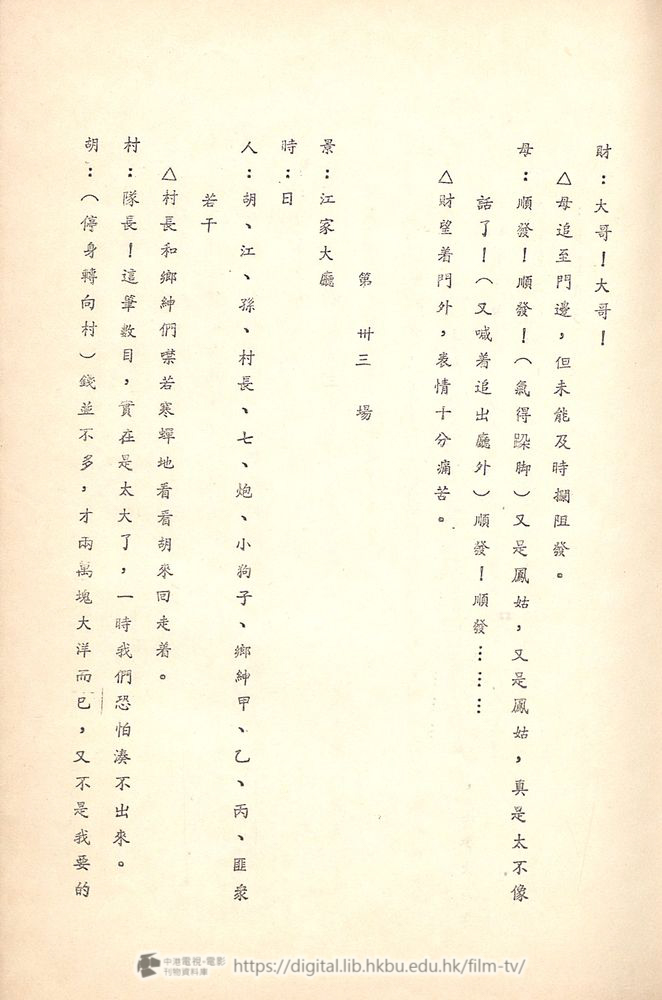 財：大哥！大哥！
△母追至門邊，但未能及時攔阻發。
母：順發！順發！（氣得跺脚）又是鳳姑，又是鳳姑，真是太不像
話了！（又喊着追出廳外）順發！順發………
△財望着門外，表情十分痛苦。
第卅三場
景：江家大廳
時：日
人：胡、江、孫、村長、七、炮、小狗子、鄉紳甲、乙、丙、匪衆
若干
△村長和鄉紳們噤若寒蟬地看看胡來回走着。
村：隊長！這筆數目，實在是太大了，一時我們恐怕湊不出來。
胡：（停身轉向村）錢並不多，才兩萬塊大洋而已，又不是我要的
中港電視・電影
刊物資料庫
https://digital.lib.hkbu.edu.hk/film-tv/